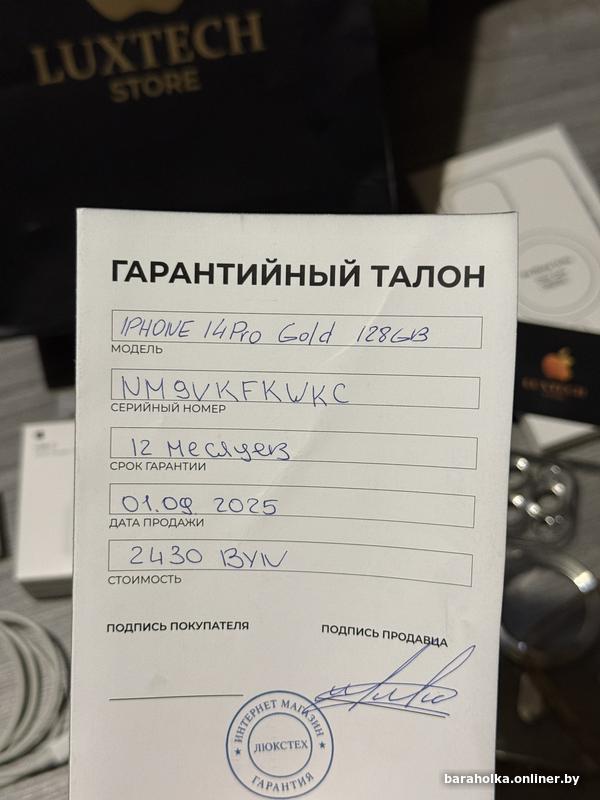 LUXTECH
STORE
ГАРАНТИЙНЫЙ ТАЛОН
IPHONE 14Pro Gold 128GB
МОДЕЛЬ
NM9VKFKWKC
СЕРИЙНЫЙ НОМЕР
12 месяцев
СРОК ГАРАНТИИ
01.09. 2025
ДАТА ПРОДАЖИ
2430 BYN
СТОИМОСТЬ
ПОДПИСЬ ПОКУПАТЕЛЯ
ПОДПИСЬ ПРОДАВЦА
ИНТЕРНЕТ МАГАЗИН
ЛЮКСТЕХ
ГАРАНТИЯ
LUXTECH
baraholka.onliner.by